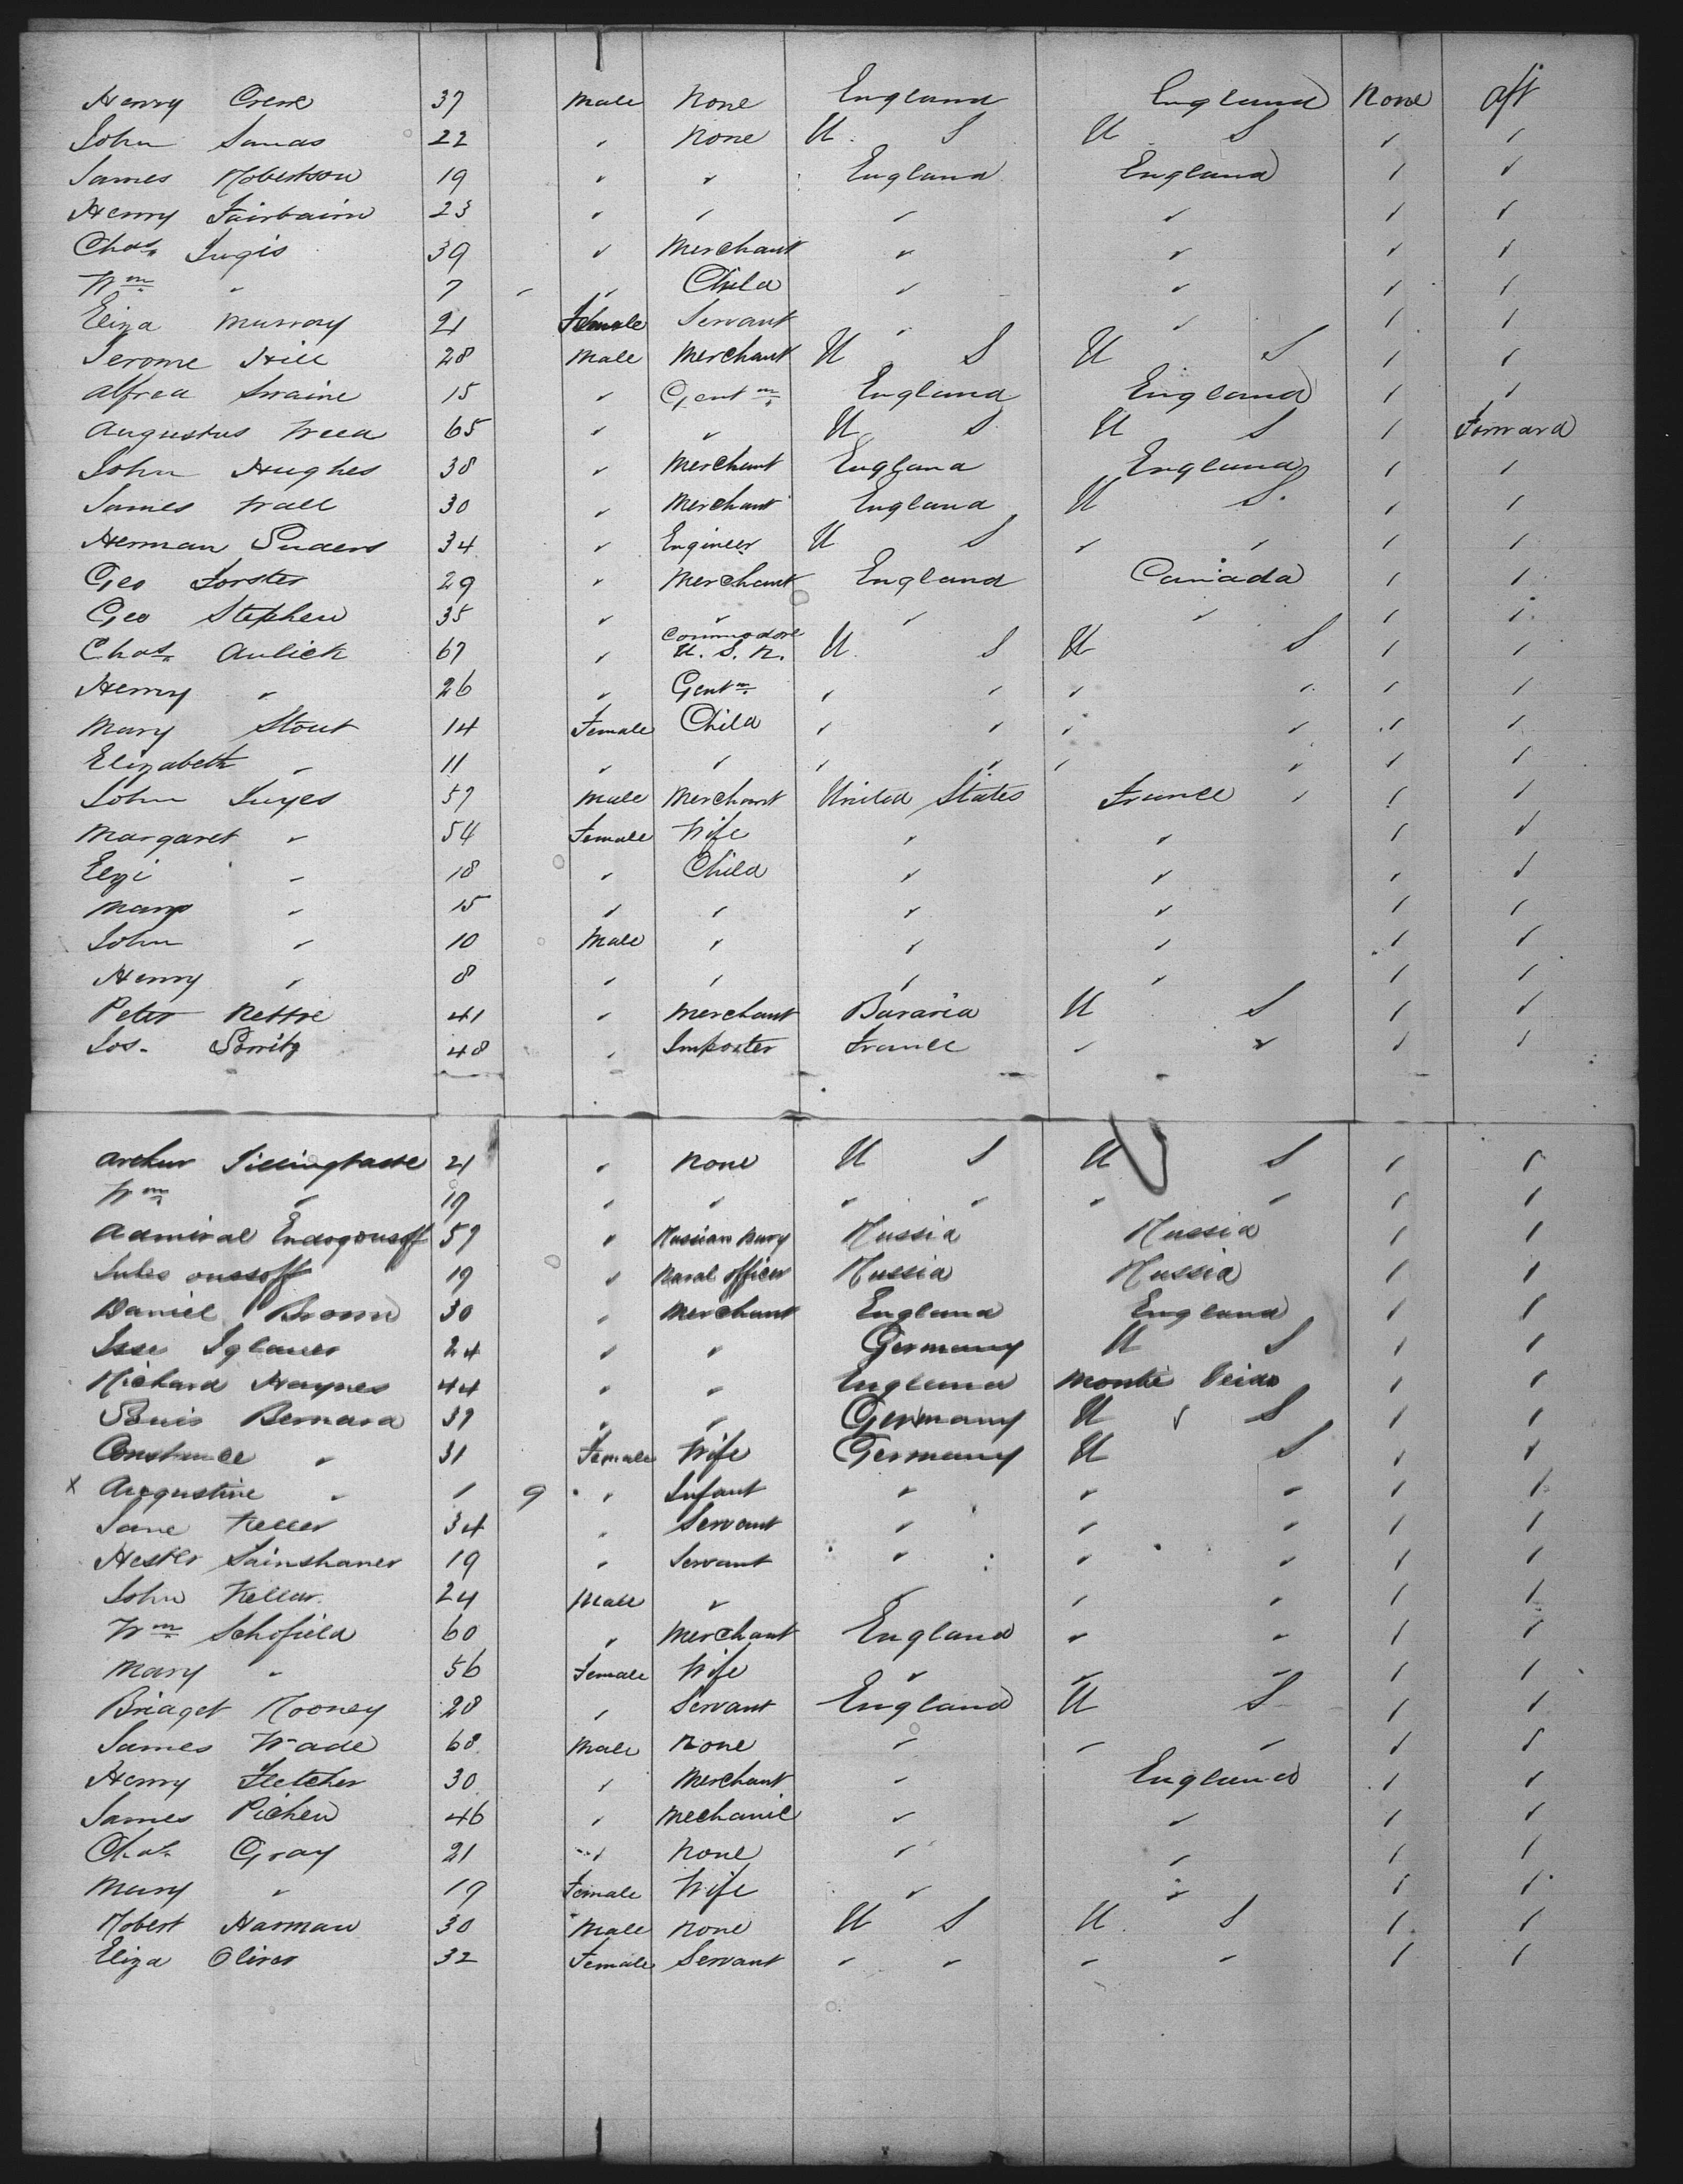 Henry 37 Male None England England None aft
John Sands 22 " None U. S U S " "
James Robertson 19 " " England England " "
Henry Fairbairn 23 " " " " " "
Chas. Ingis 39 " Merchant " " " "
Wm " 7 " " Child " " " "
Eliza Murray 21 Female Servant " " " "
Jerome Hill 28 Male Merchant U S U S " "
Alfred Swaine 15 " Gentm. England England " "
Augustus Weed 65 " " U S U S " Forward
John Hughes 38 " Merchant England England " "
James Wall 30 " Merchant England U S. " "
Herman 34 " Engineer U S " " " "
Geo Forster 29 " Merchant England Canada " "
Geo Stephen 35 " " " " " "
Chas. Aulick 67 " Commodore U. S. N. U S U S " "
Henry " 26 " Gentm. " " " " " "
Mary Stout 14 Female Child " " " " " "
Elizabeth " 11 " " " " " " " "
John Juyes 57 Male Merchant United States France " " "
Margaret " 54 Female Wife " " " "
" 18 " Child " " " "
Mary " 15 " " " " " "
John " 10 Male " " " " "
Henry " 8 " " " " " "
Peter 41 " Merchant Bavaria U S " "
Jos. 48 " Importer France " " " "
Arthur Tillinghaste 21 " None U S U S " "
Wm " 19 " " " " " " " "
Admiral Endogousoff 59 " Russian Navy Russia Russia " "
Jules oussoff 19 " Naval officer Russia Russia " "
Daniel Brown 30 " Merchant England England " "
Iglauer 24 " " Germany U S " "
Richard Haynes 44 " " England Monte Veido " "
Louis Bernard 37 " " Germany U " S " "
Constance " 31 Female Wife Germany U S " "
x Augustine " 1 9 " Infant " " " " "
Jane Keller 34 " Servant " " " " "
Hester Sainshaner 19 " Servant " " " " "
John Kellar. 24 Male " " " " " "
Wm Schofield 60 " Merchant England " " " "
Mary " 56 Female Wife " " " " "
Bridget Rooney 28 " Servant England U S " "
James Wade 68 Male None " " " " "
Henry Fletcher 30 " Merchant " England " "
James Pichen 46 " Mechanic " " " "
Chas. Gray 21 " None " " " "
Mary " 19 Female Wife " " " "
Robert Harman 30 Male None U S U. S " "
Eliza Oliver 32 Female Servant " " " " " "